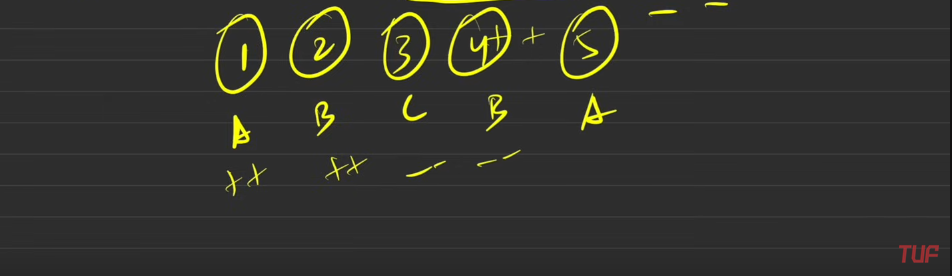 — —
1 2 3 4+ + 5
A B C B A
++ ++ -- --
TUF